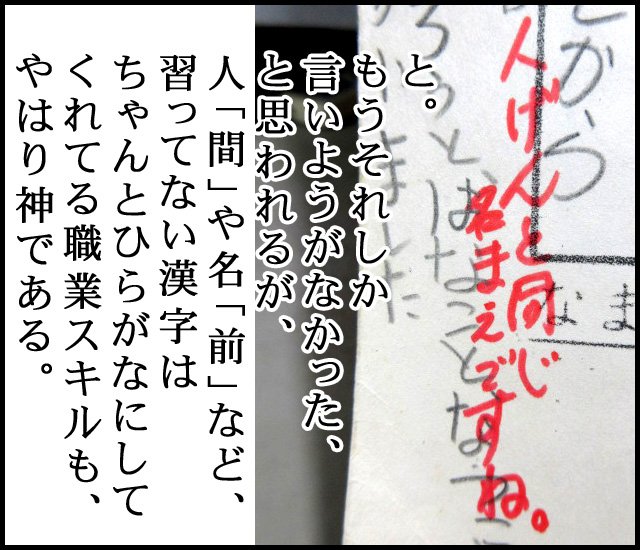 から
なま
人げんと同じ
名まえですね。
と。
もうそれしか
言いようがなかった、
と思われるが、
人「間」や名「前」など、
習ってない漢字は
ちゃんとひらがなにして
くれてる職業スキルも、
やはり神である。